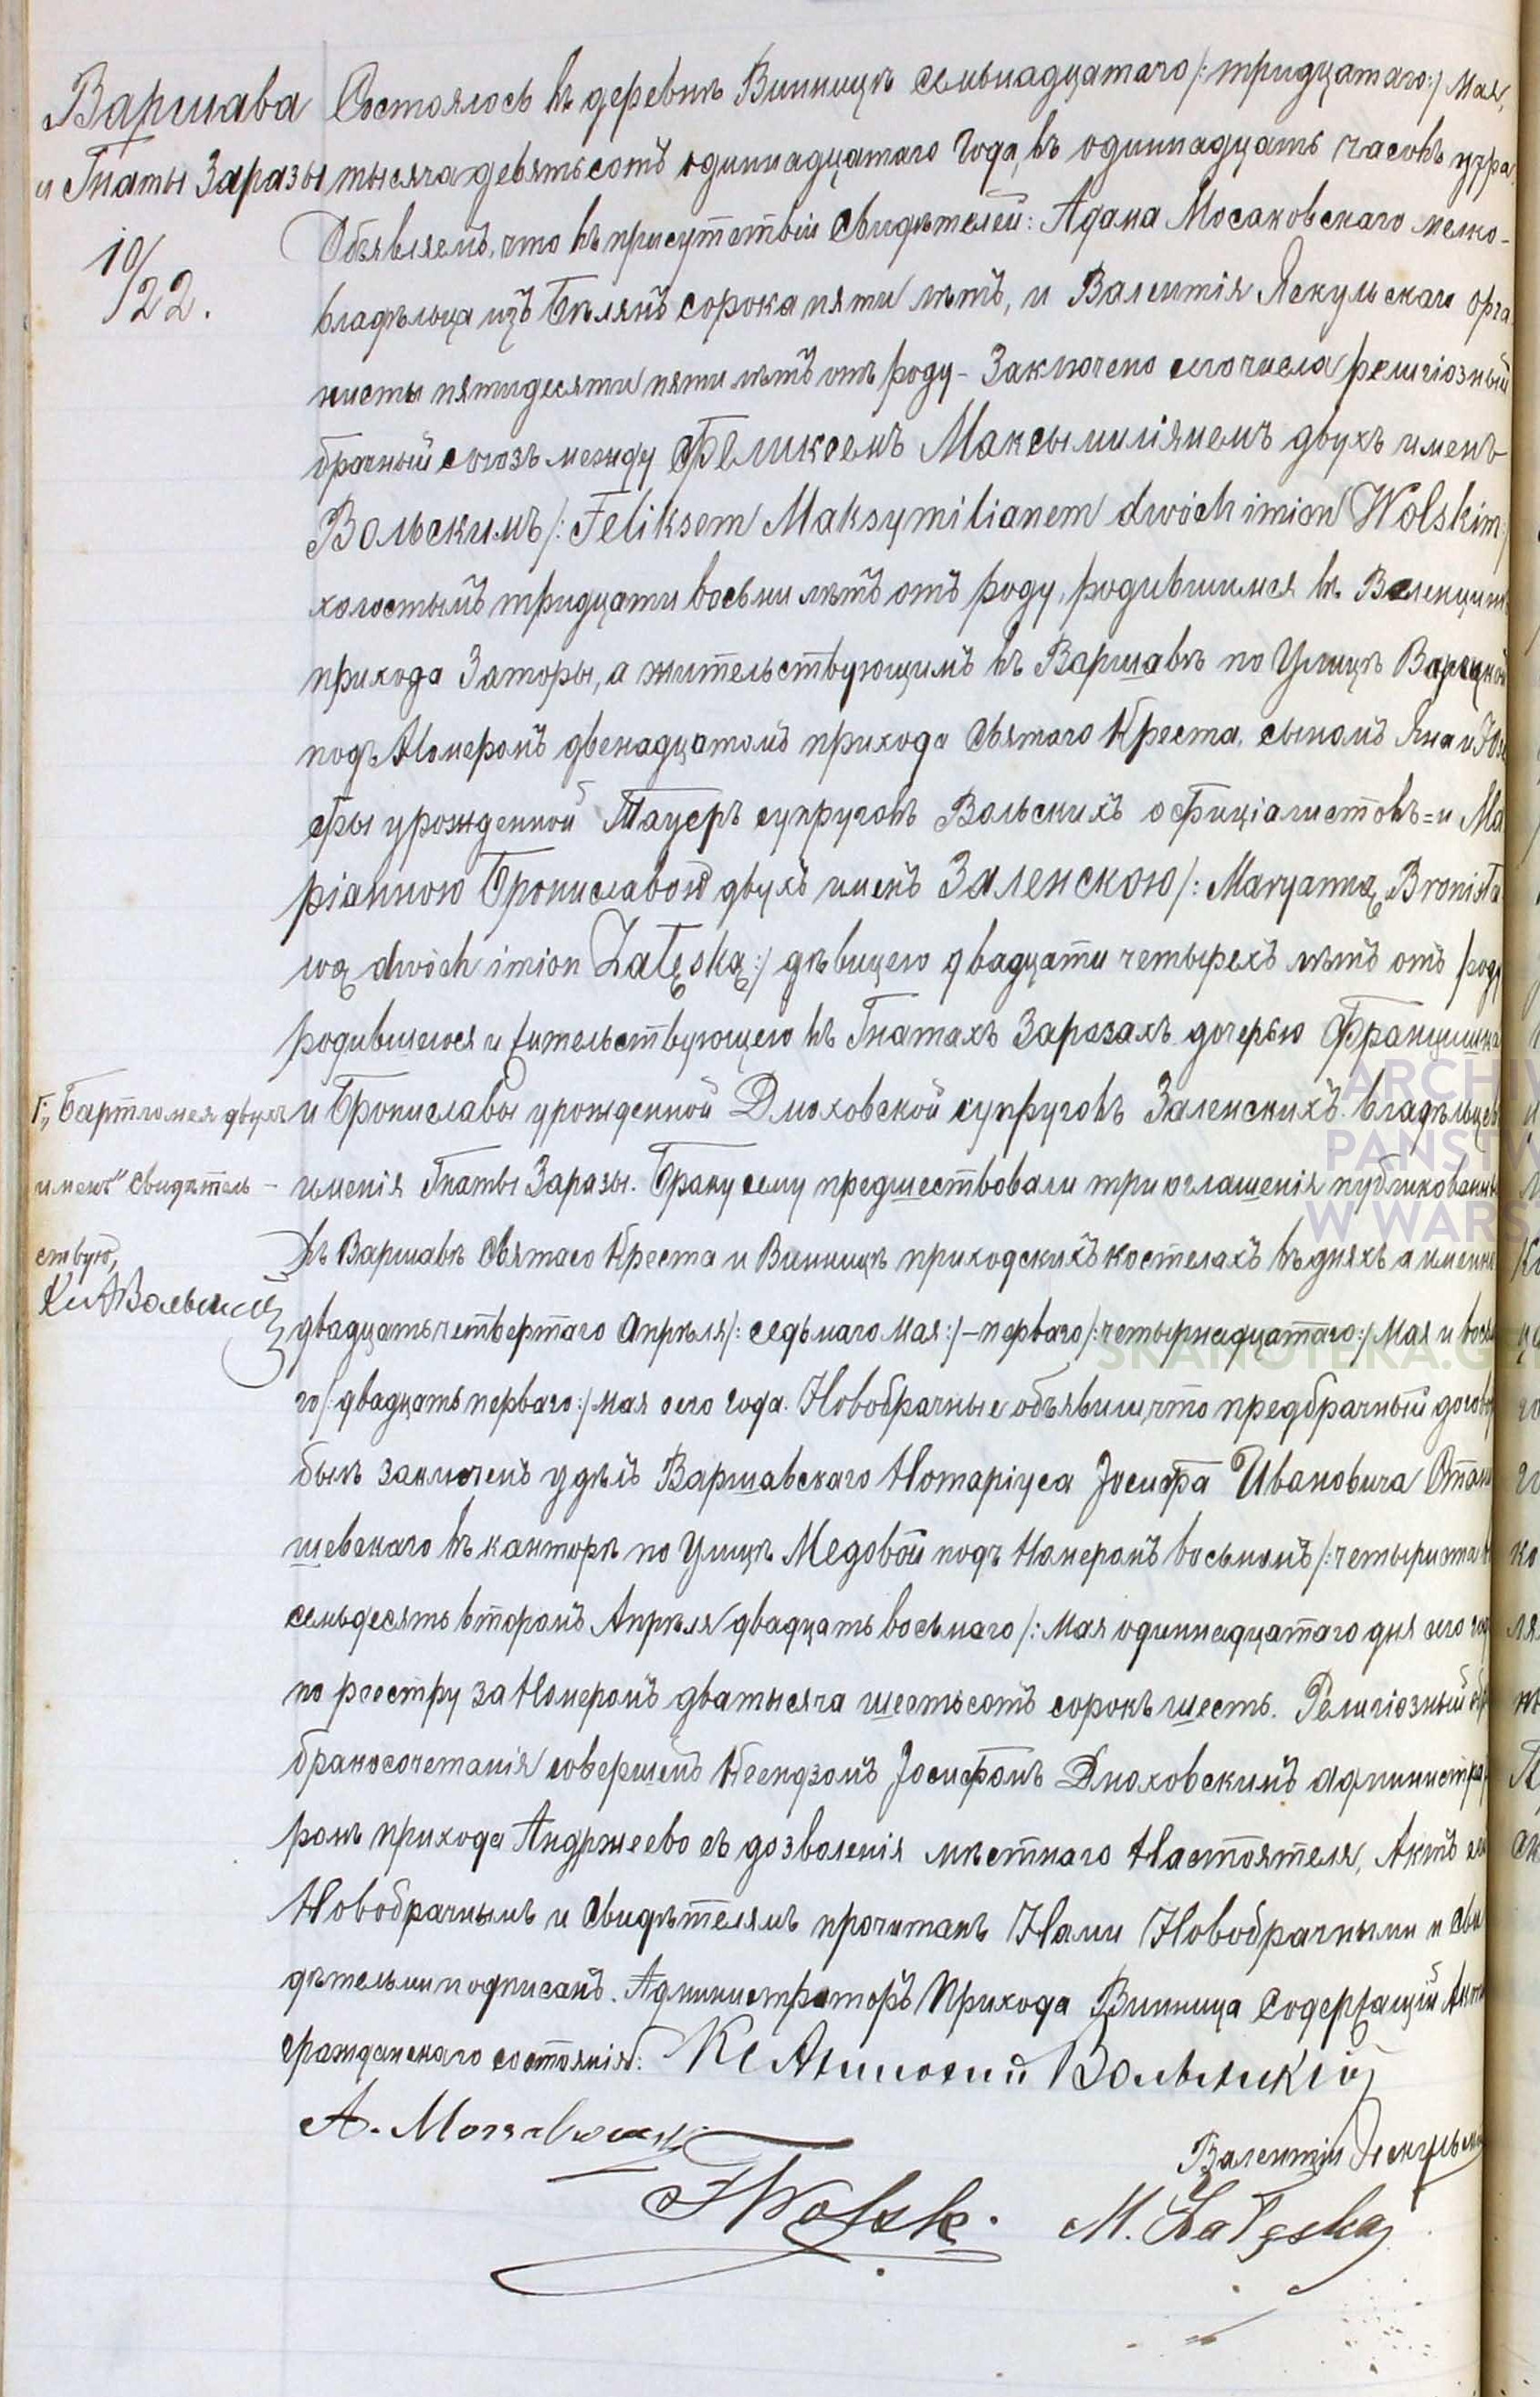 Варшава
и Гнаты Заразы
10/22.
Состоялось въ деревнѣ Винницѣ семьнадцатаго /:тридцатаго:/ Мая,
тысяча девятьсотъ одиннадцатаго Года, въ одиннадцать часовъ утра.
Объявляемъ, что въ присутствіи свидѣтелей: Адама Мосаковскаго мелко-
владѣльца изъ Бѣлянъ сорока пяти лѣтъ, и Валентія Якульскаго орга
нисты пятидесяти пяти лѣтъ отъ роду – Заключено сего числа религіозный
брачный союзъ между Феликсемъ Максымиліянемъ двухъ именъ
Вольскимъ /: Feliksem Maksymilianem dwóch imion Wolskim:/
холостымъ тридцати восьми лѣтъ отъ роду, родившимся въ
прихода Заторы, а жительствующимъ въ Варшавѣ по Улицѣ Варецкой
подъ Номеромъ двенадцатомъ прихода Святаго Креста, сыномъ Яна и Юзе
фы урожденной Тауеръ супруговъ Вольскихъ оффиціалистовъ = и Ма
ріанною Брониславою двухъ именъ Заленскою /: Maryanną Bronisła
wą dwóch imion Załęską:/ дѣвицею двадцати четырехъ лѣтъ отъ роду
родившеюся и жительствующею въ Гнатахъ Заразахъ дочерью Францишка
Г;, Бартломея двухъ
именъ" свидѣтель-
ствую,
Кс А Вольинскій
и Брониславы урожденной Дмоховской супруговъ Заленскихъ владѣльцевъ
именія Гнаты Заразы. Браку сему предшествовали три оглашенія публикованны
въ Варшавѣ Святаго Креста и Винницѣ приходскихъ костелахъ въ дняхъ а именно
двадцать четвертаго Апрѣля /: седьмаго Мая:/ – перваго /: четырнадцатаго:/ Мая и восьма
го /: двадцать перваго:/ мая сего года. Новобрачные объявили что предбрачный договоръ
былъ заключенъ у дѣлъ Варшавскаго Нотаріуса Іосифа Ивановича Стани
шевскаго въ канторѣ по Улицѣ Медовой подъ Номеромъ восьмомъ /: четыриста
семьдесять второмъ Апрѣля двадцать восьмаго /: Мая одиннадцатаго дня сего года
по реестру за Номеромъ дватысяча шестьсотъ сорокъ шесть. Религіозный
бракосочетанія совершенъ Ксендзомъ Іосифомъ Дмоховскимъ администрато
ромъ прихода Андржеево съ дозволенія мѣстнаго Настоятеля, Актъ сей
Новобрачнымъ и Свидѣтелямъ прочитанъ Нами Новобрачными и сви
дѣтельми подписанъ. Администраторъ Прихода Винница Содержащій Акты
гражданскаго состоянія: Кс Антоній Вольинскій
A. Mosakowski
Валентій Якульскі
FWolski. M. Załęska
ARCHIW
PAŃSTW
W WARS
SKANOTEKA.GE